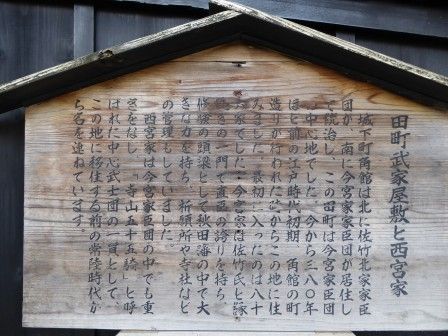 田町武家屋敷と西宮家
城下町角館は北に佐竹北家家臣
団が、南に今宮家家臣団が居住し
て統治し、この田町は今宮家家臣団
の中心地でした。今から三八〇年
ほど前の江戸時代初期、角館の町
造りが行われた時からこの地に住
みました。最初に入ったのは八十
家でした。今宮家は佐竹氏と縁
続きの一門で直臣の誇りを持ち
修験の頭梁として秋田藩の中で大
きな力を持ち、祈願所や寺社など
の管理もしていました。
西宮家は今宮家臣団の中でも重
きをなし、「寺山五十五騎」と呼
ばれた中心武士団の一員として、
この地に移住する前の常陸時代か
ら名を連ねています。